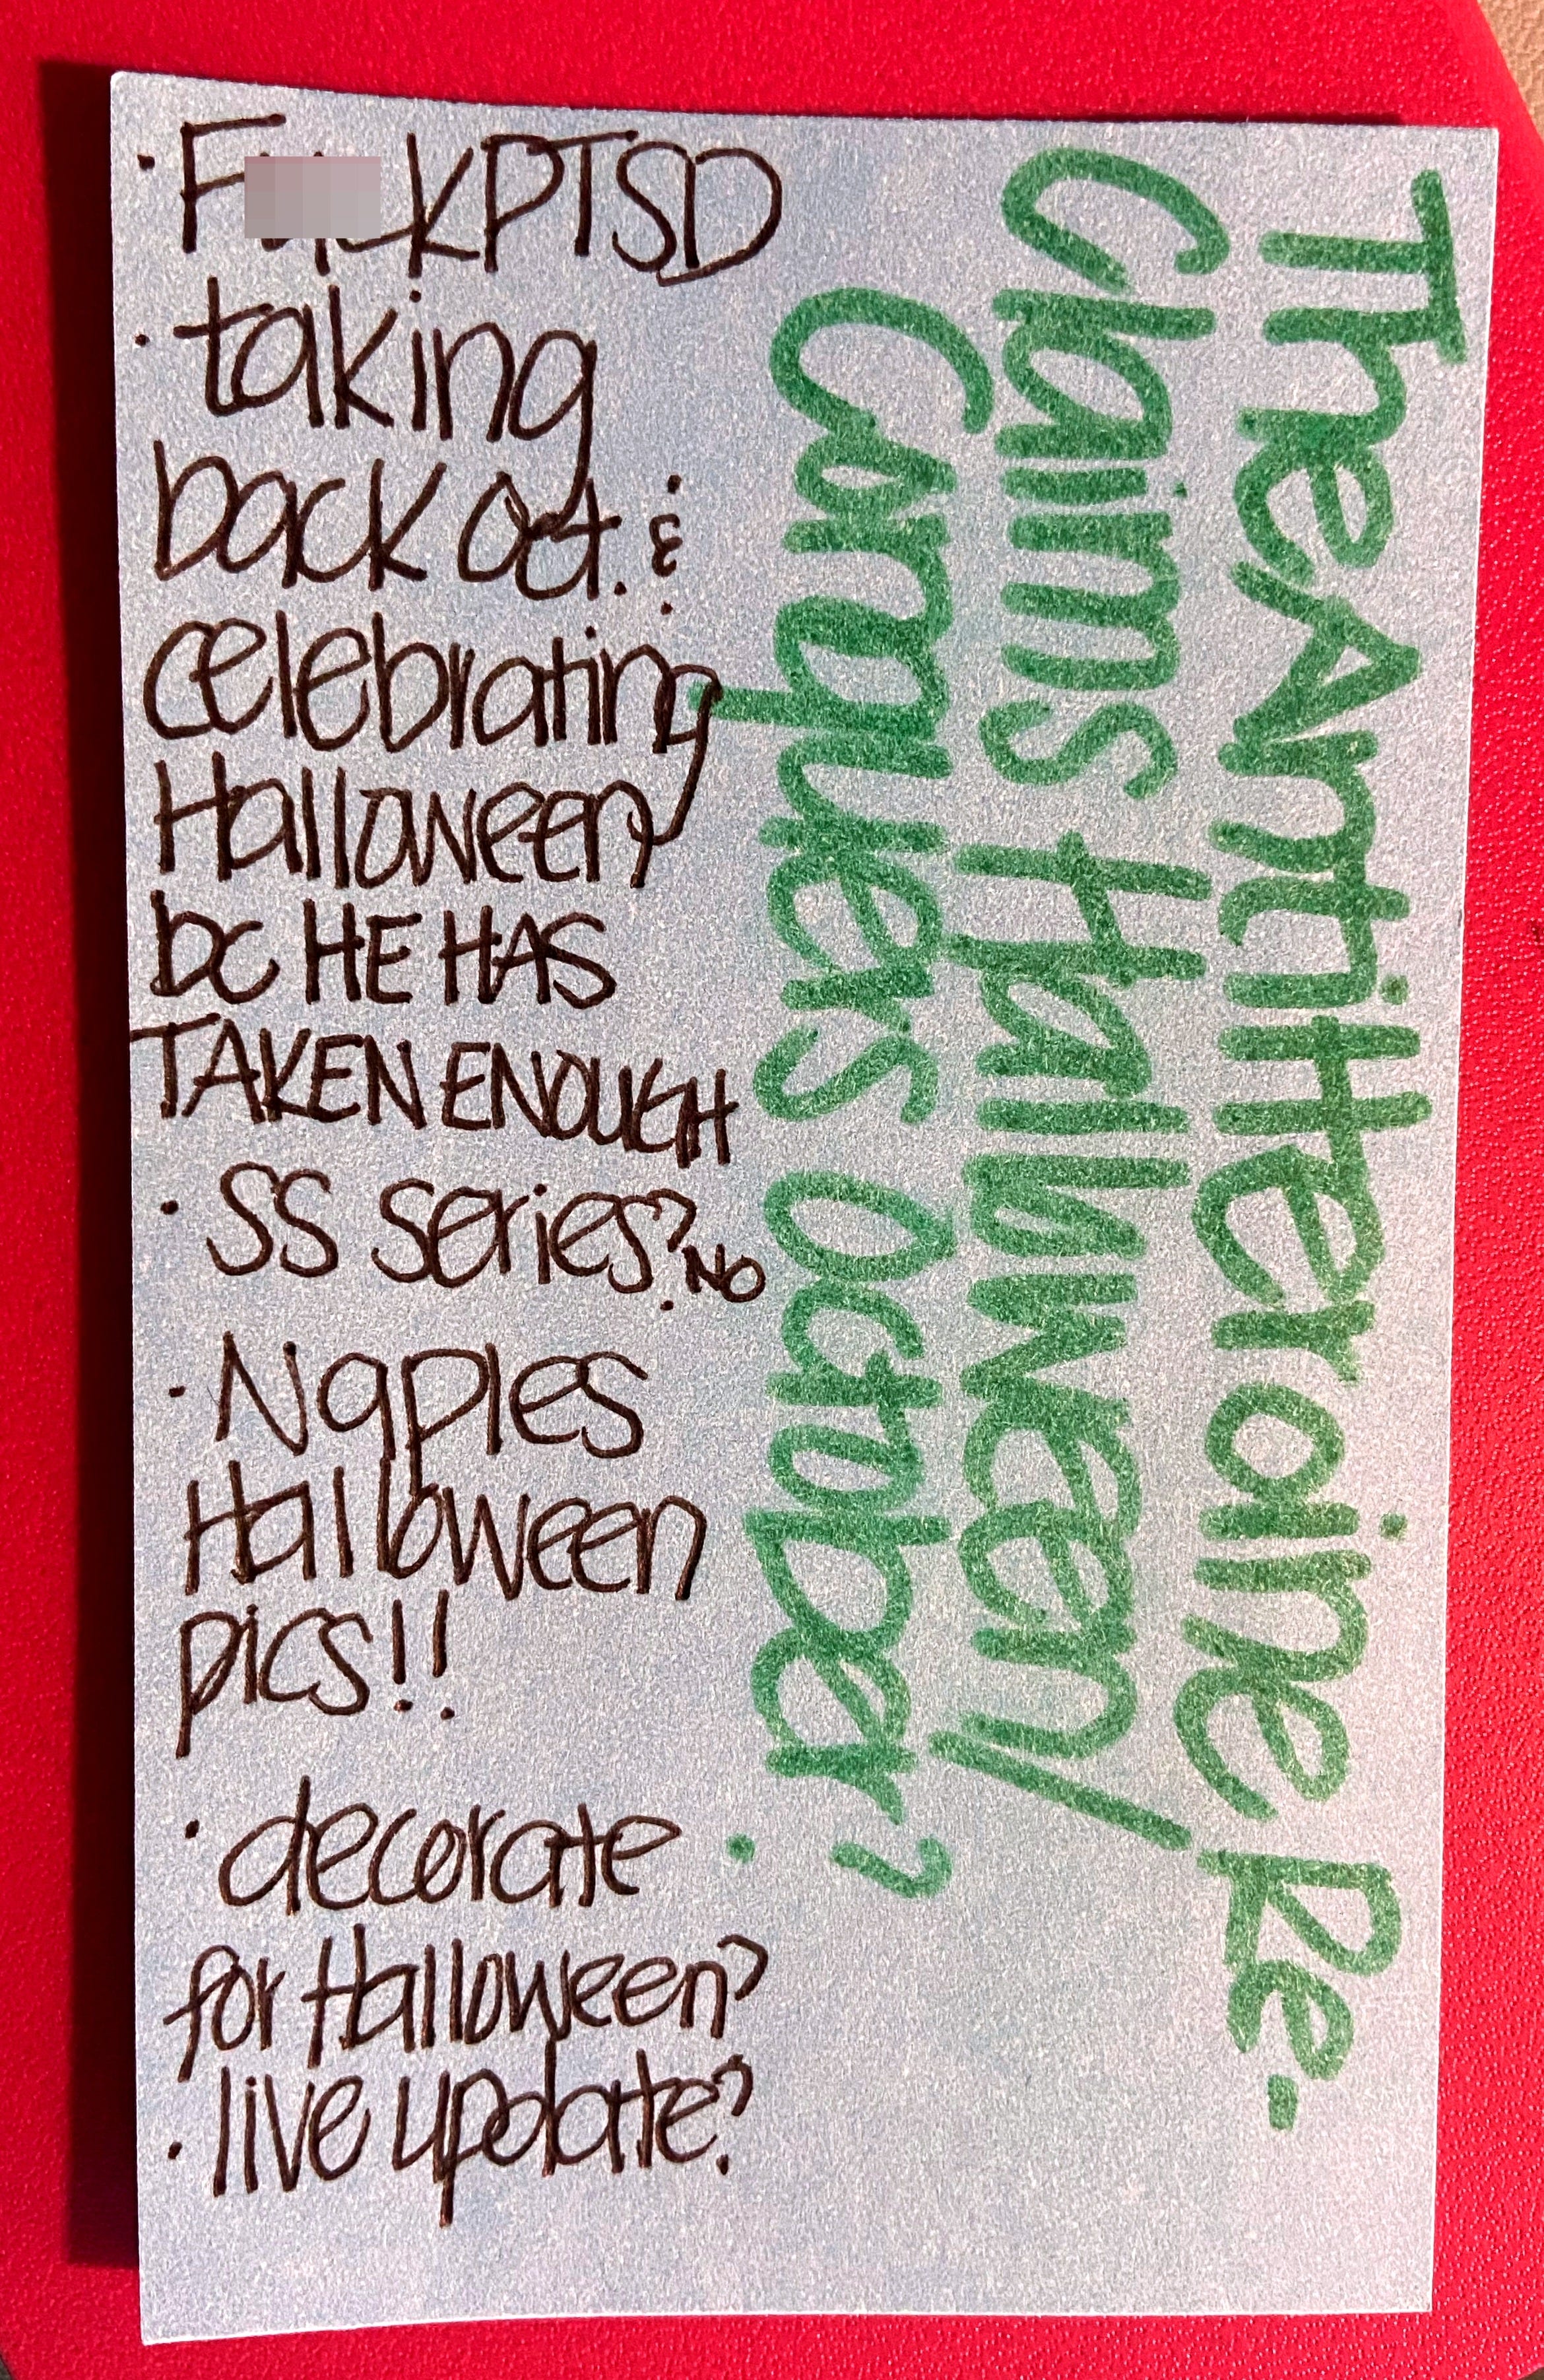 · F KPTSD
· taking
back Oct. &
celebrating
Halloween
bc HE HAS
TAKEN ENOUGH
· SS series? NO
· Naples
Halloween
pics!!
· decorate
for Halloween?
· live update?
The AntiHeroine Re-
Claims Halloween/
Conquers October?